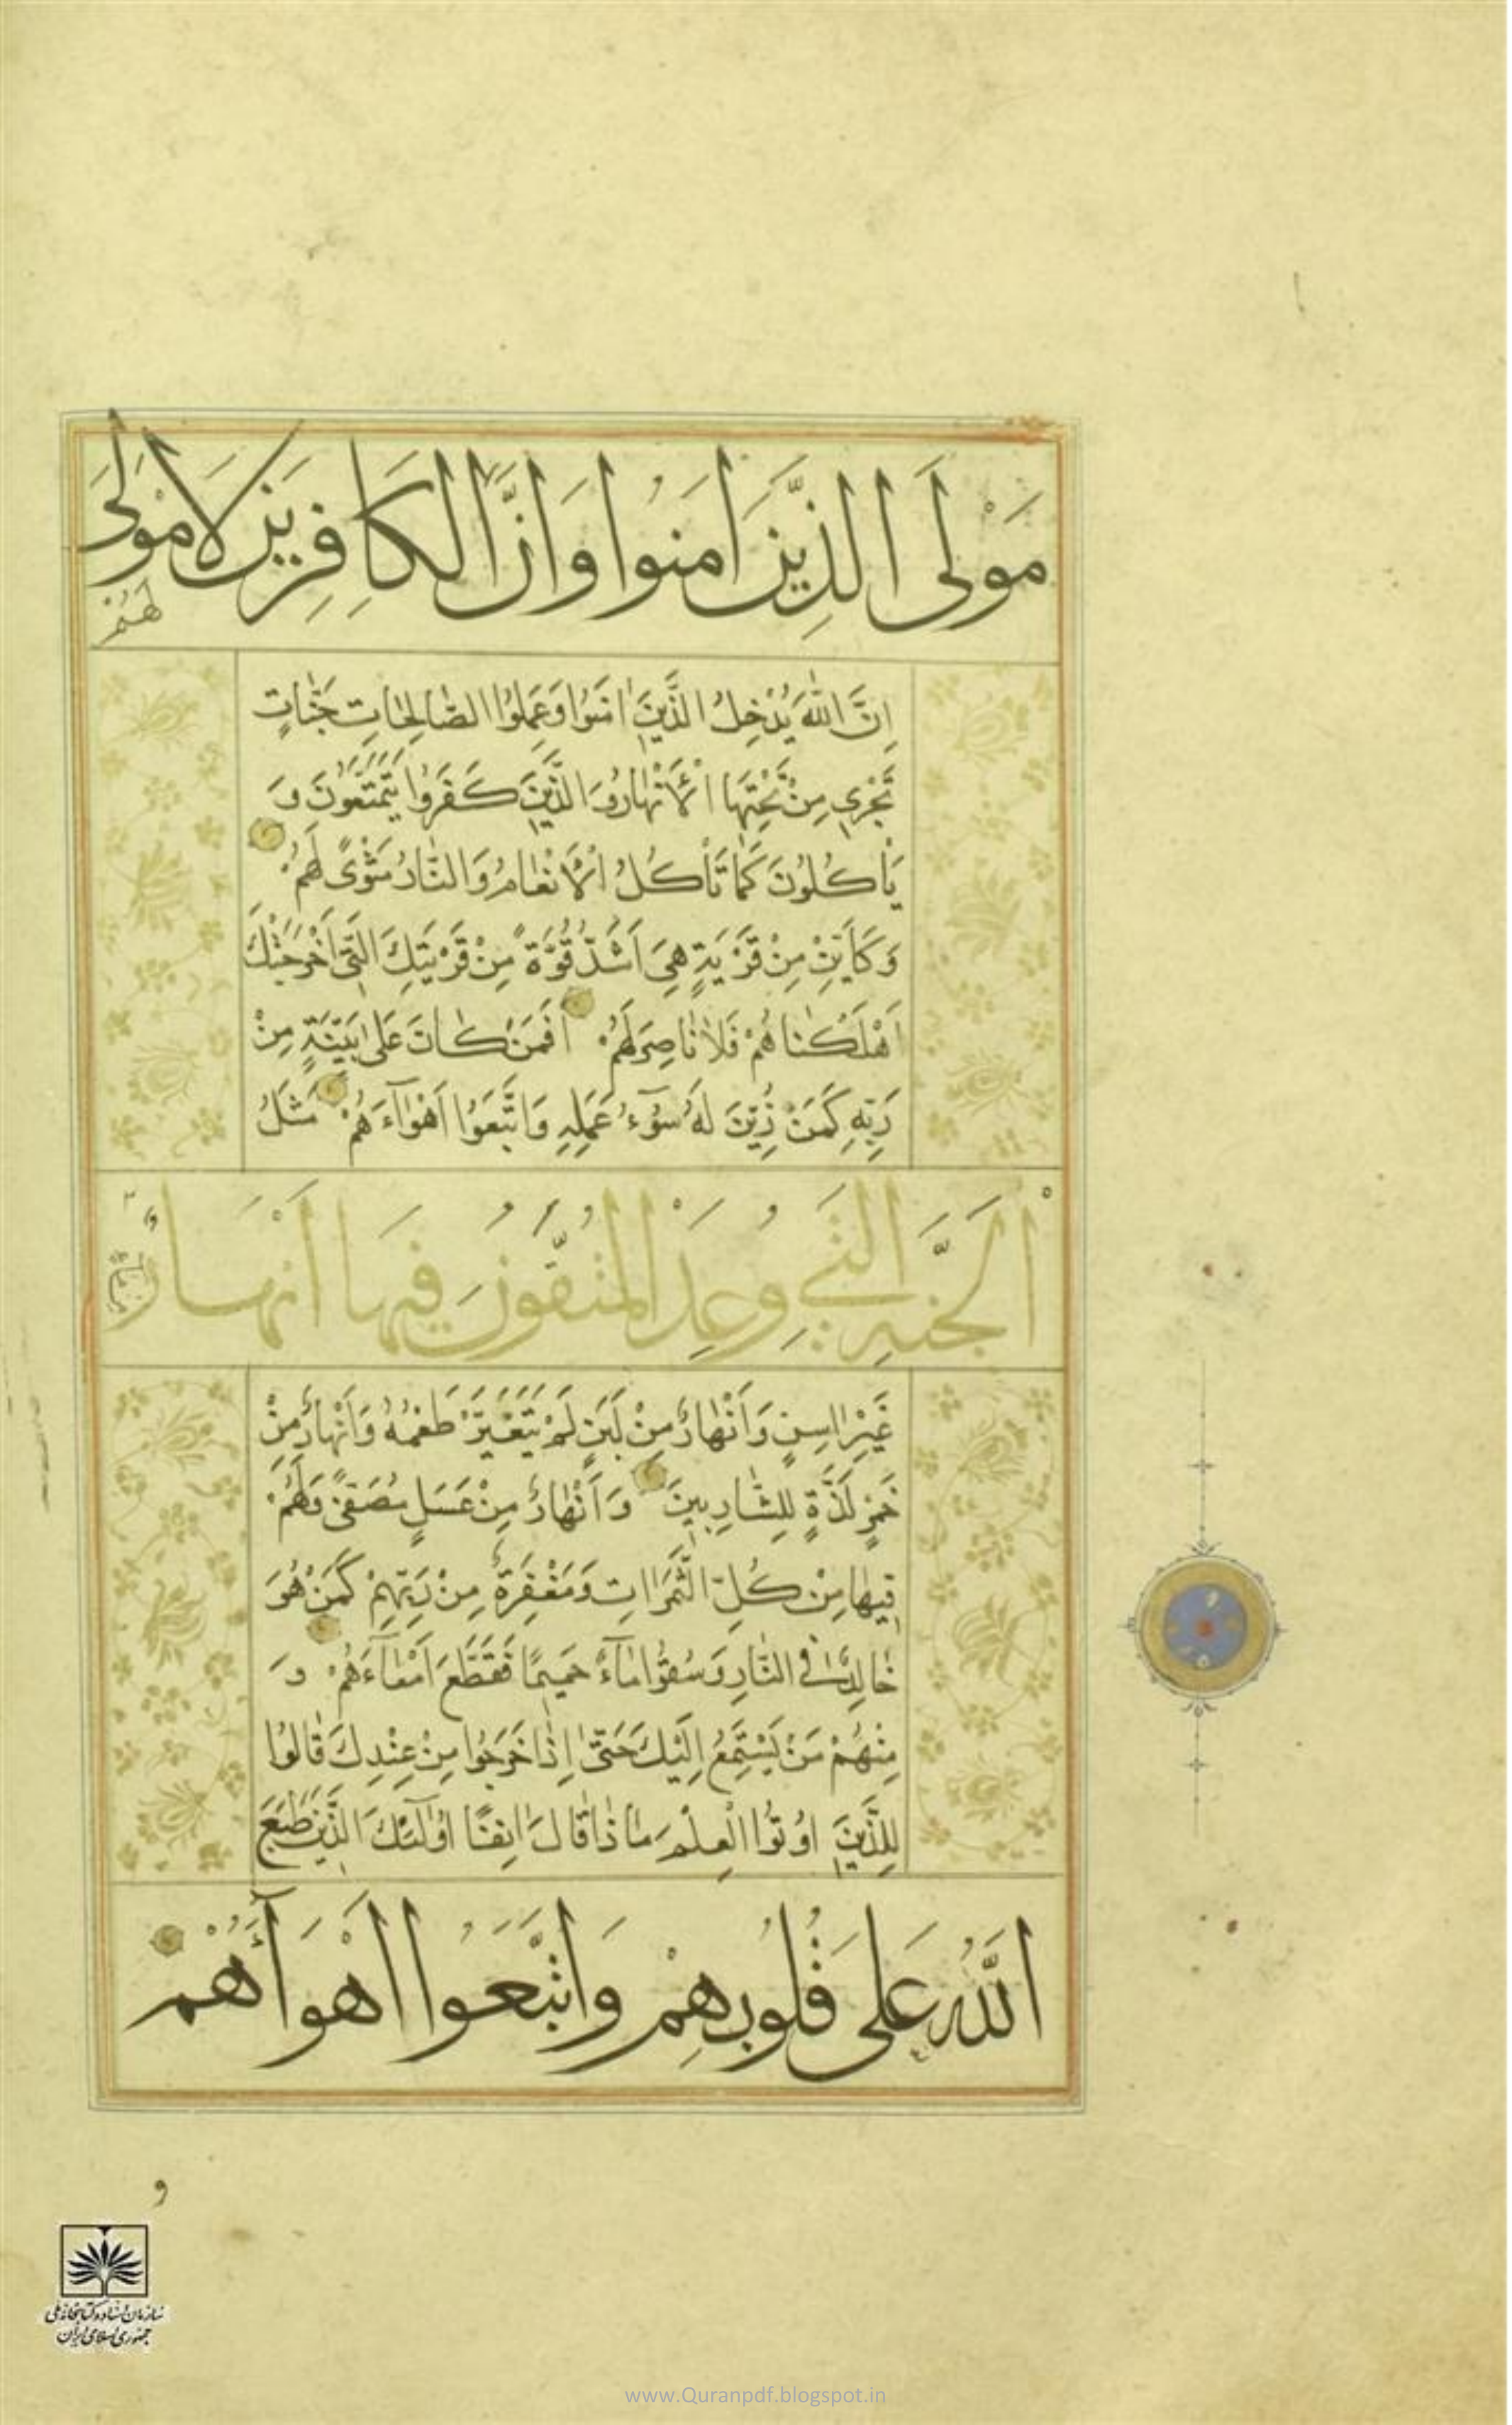 مَوْلَى الَّذِينَ اٰمَنُوا وَاَنَّ الْكَافِرِينَ لَا مَوْلٰى
لَهُمْ
اِنَّ اللّٰهَ يُدْخِلُ الَّذِينَ اٰمَنُوا وَعَمِلُوا الصَّالِحَاتِ جَنَّاتٍ
تَجْرِي مِنْ تَحْتِهَا الْاَنْهَارُ وَالَّذِينَ كَفَرُوا يَتَمَتَّعُونَ وَ
يَاْكُلُونَ كَمَا تَاْكُلُ الْاَنْعَامُ وَالنَّارُ مَثْوًى لَهُمْ
وَكَاَيِّنْ مِنْ قَرْيَةٍ هِيَ اَشَدُّ قُوَّةً مِنْ قَرْيَتِكَ الَّتِي اَخْرَجَتْكَ
اَهْلَكْنَاهُمْ فَلَا نَاصِرَ لَهُمْ اَفَمَنْ كَانَ عَلٰى بَيِّنَةٍ مِنْ
رَبِّهِ كَمَنْ زُيِّنَ لَهُ سُوٓءُ عَمَلِهِ وَاتَّبَعُوا اَهْوَآءَهُمْ مَثَلُ
الْجَنَّةِ الَّتِي وُعِدَ الْمُتَّقُونَ فِيهَا اَنْهَارٌ
مِنْ مَاءٍ
غَيْرِ اٰسِنٍ وَاَنْهَارٌ مِنْ لَبَنٍ لَمْ يَتَغَيَّرْ طَعْمُهُ وَاَنْهَارٌ مِنْ
خَمْرٍ لَذَّةٍ لِلشَّارِبِينَ وَاَنْهَارٌ مِنْ عَسَلٍ مُصَفًّى وَلَهُمْ
فِيهَا مِنْ كُلِّ الثَّمَرَاتِ وَمَغْفِرَةٌ مِنْ رَبِّهِمْ كَمَنْ هُوَ
خَالِدٌ فِي النَّارِ وَسُقُوا مَآءً حَمِيمًا فَقَطَّعَ اَمْعَآءَهُمْ وَ
مِنْهُمْ مَنْ يَسْتَمِعُ اِلَيْكَ حَتّٰى اِذَا خَرَجُوا مِنْ عِنْدِكَ قَالُوا
لِلَّذِينَ اُوتُوا الْعِلْمَ مَاذَا قَالَ اٰنِفًا اُولٰٓئِكَ الَّذِينَ طَبَعَ
اللّٰهُ عَلٰى قُلُوبِهِمْ وَاتَّبَعُوا اَهْوَآءَهُمْ
و
سازمان اسناد و کتابخانه ملی
جمهوری اسلامی ایران
www.Quranpdf.blogspot.in